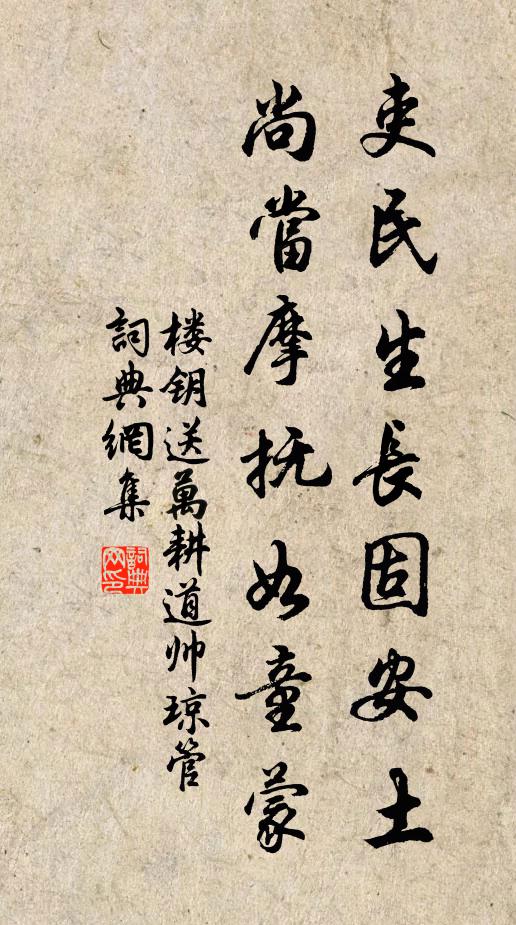 吏民生長固安土
尚當摩抚如童蒙
楼钥送萬耕道帅琼管
詞典網集
詞典网印